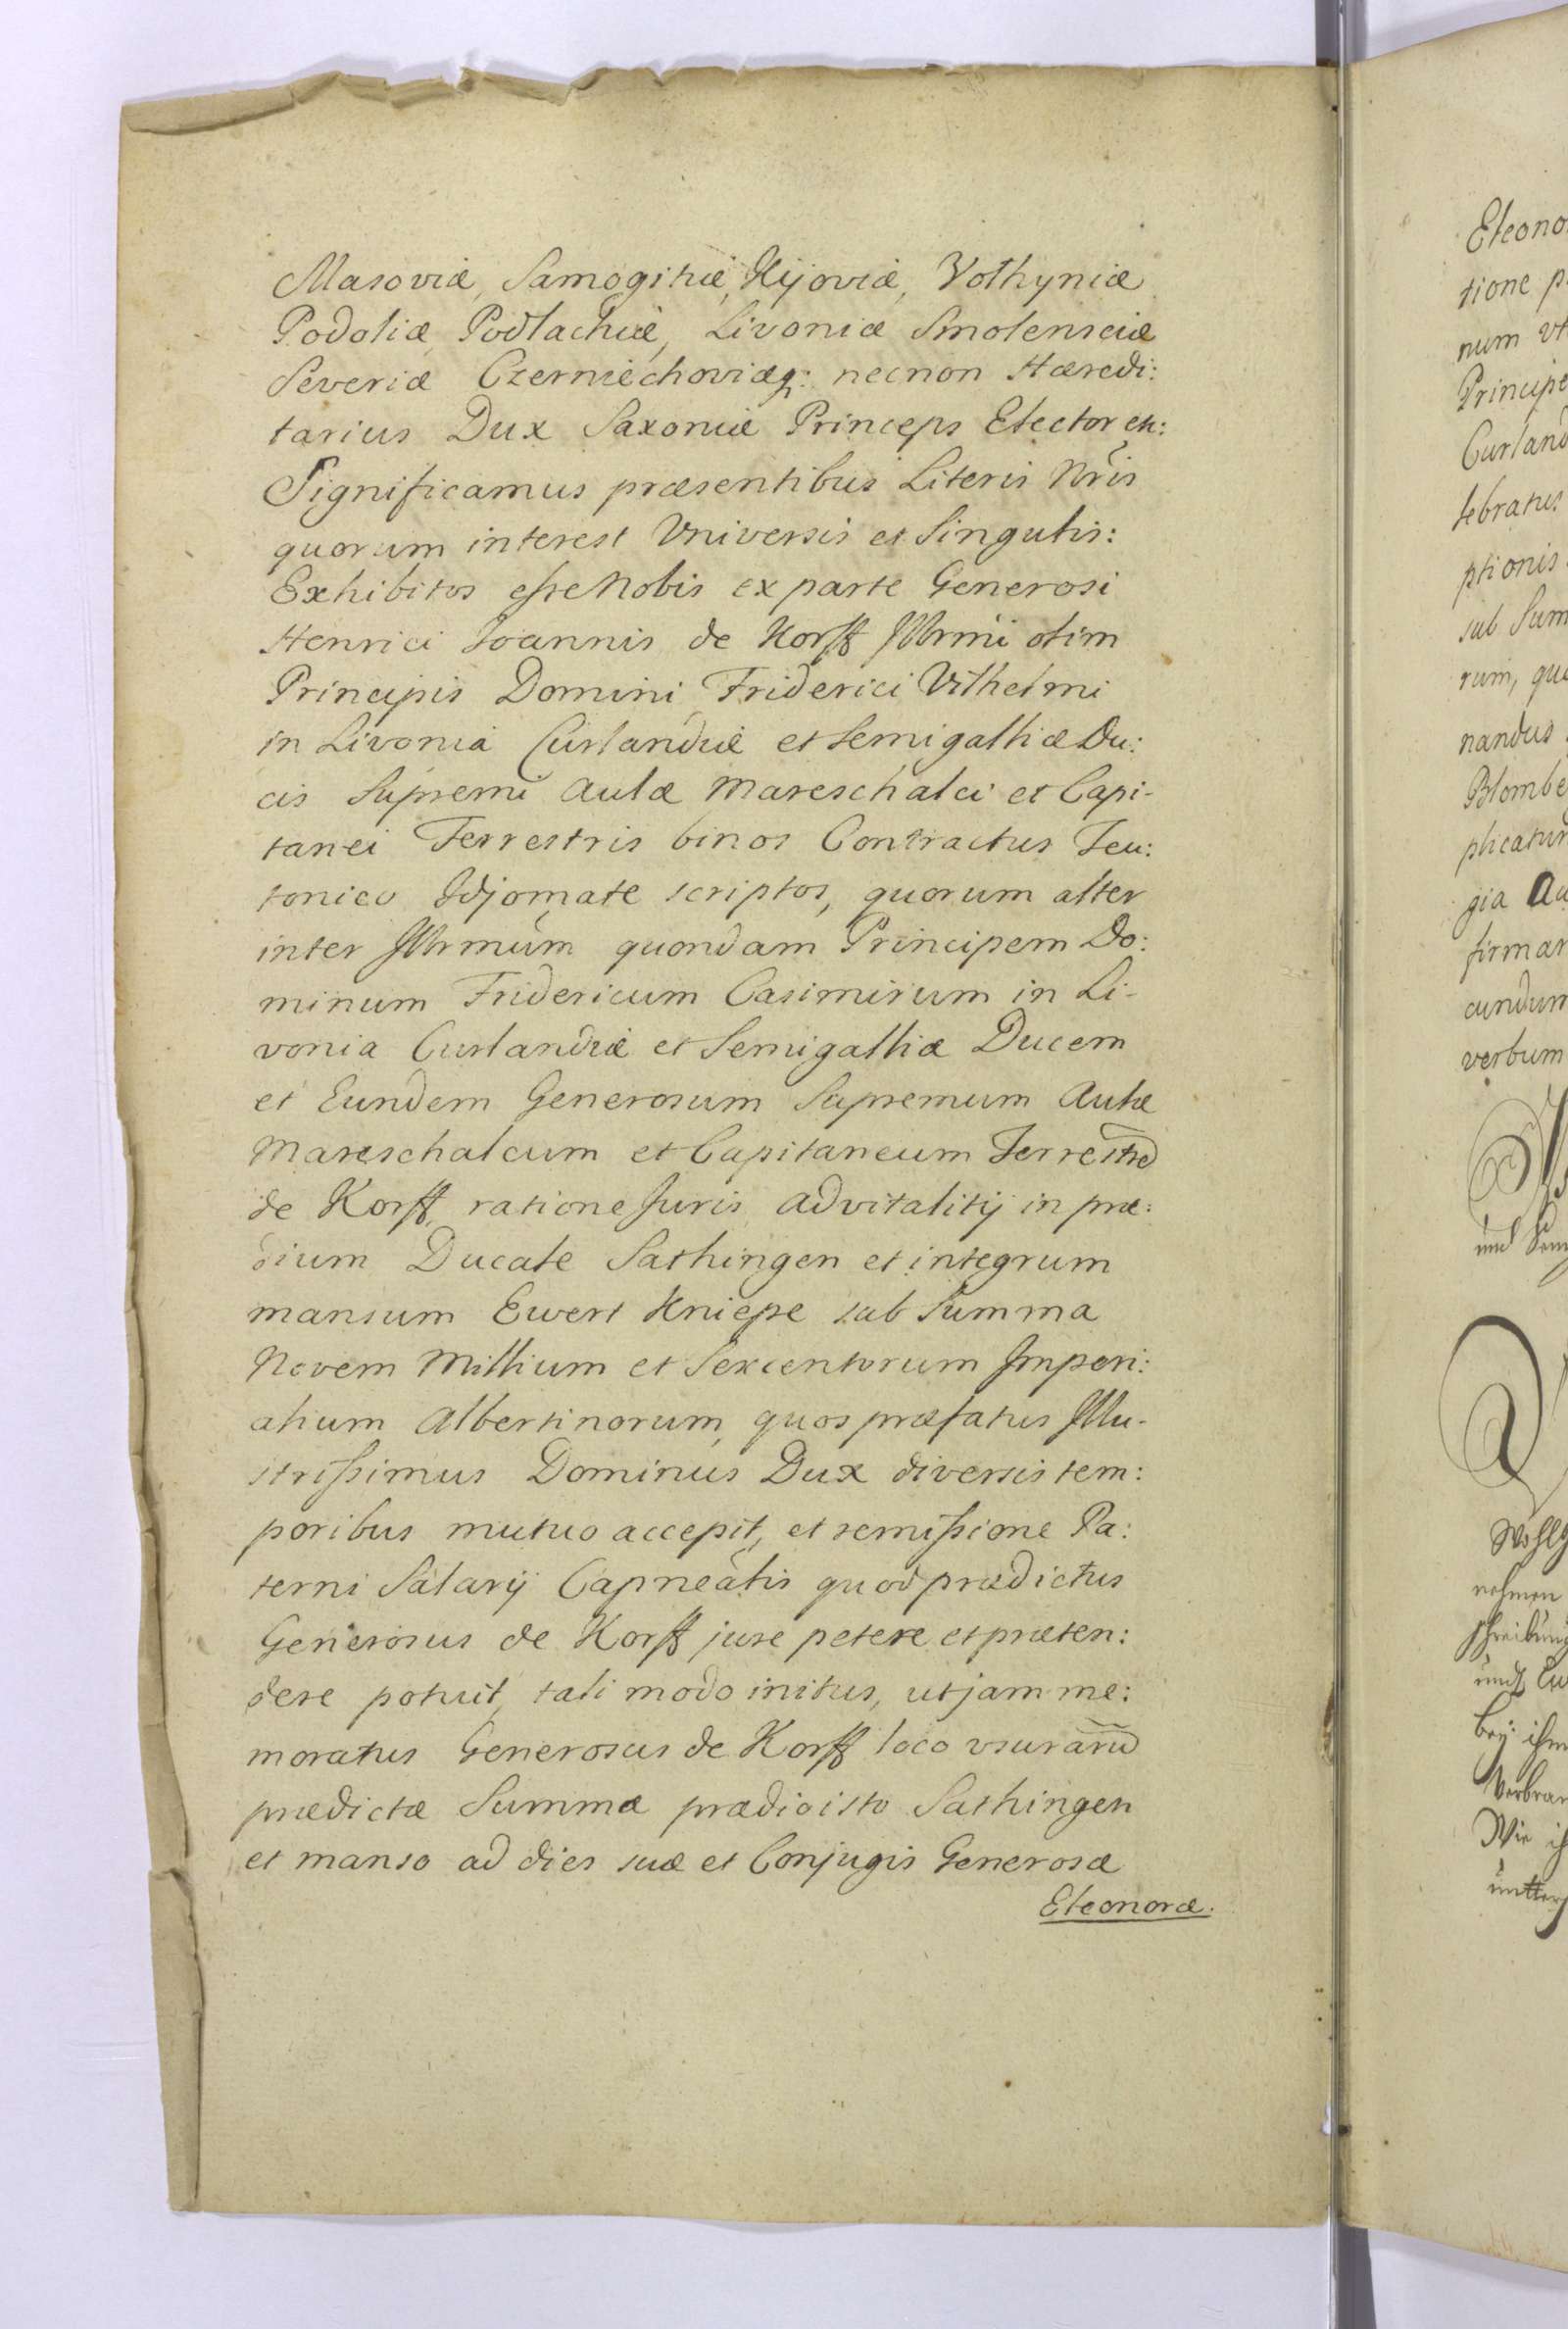 Masoviæ, Samogitiæ, Kijoviæ, Volhyniæ
Podoliæ Podlachiæ, Livoniæ Smolensciæ
Severiæ Czerniechoviæq: necnon Hæredi:
tarius Dux Saxoniæ Princeps Elector etc:
Significamus præsentibus Literis Nr̃is
quorum interest Vniversis et Singulis:
Exhibitos eſse Nobis ex parte Generosi
Henrici Joannis de Korff Jllrmi olim
Principis Domini Friderici Vilhelmi
in Livonia Curlandiæ et Semigalliæ Du:
cis Supremi Aulæ Mareschalci et Capi-
tanei Terrestris binos Contractus Teu:
tonico Jdjomate scriptos, quorum alter
inter Jllrmum quondam Principem Do:
minum Fridericum Casimirum in Li-
vonia Curlandiæ et Semigalliæ Ducem
et Eundem Generosum Supremum Aulæ
Mareschalcum et Capitaneum Terrestre͠
de Korff, ratione Juris advitalitij in præ:
dium Ducale Sathingen et integrum
mansum Ewert Kniepe sub Summa
Novem Millium et Sexcentorum Jmperi:
alium Albertinorum, quos præfatus Jllu-
striſsimus Dominus Dux diversis tem:
poribus mutuo accepit, et remiſsione Pa:
terni Salarij Capneãlis quod prædictus
Generosus de Korff jure petere et præten:
dere potuit, tali modo initus, ut jam me:
moratus Generosus de Korff loco vsuraru͠
prædictæ Summæ prædio isto Sathingen
et manso ad dies suæ et Conjugis Generosæ
Eleonoræ.
Eleono
tione p
num vt
Principe
Curland
lebratus
ptionis
sub Sum
rum, qu
nandus
Blombe
plicatur
gia Au
firmar
cundum
verbum
und Sem
Wohlg
nehmen
schreibung
undt Cu
bey ihm
Wie ih